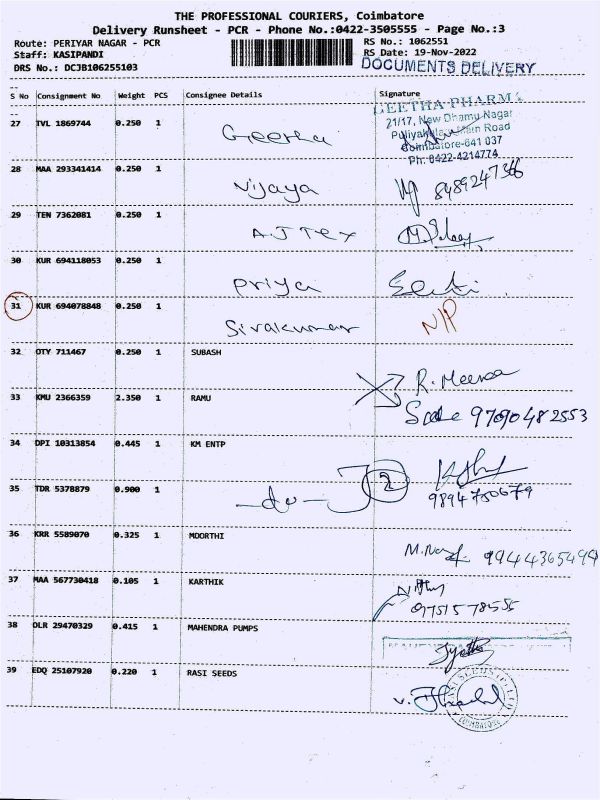 THE PROFESSIONAL COURIERS, Coimbatore
Delivery Runsheet - PCR - Phone No.:0422-3505555 - Page No.:3
Route: PERIYAR NAGAR - PCR
RS No.: 1062551
Staff: KASIPANDI
RS Date: 19-Nov-2022
DRS No.: DCJB106255103
DOCUMENTS DELIVERY
S No Consignment No Weight PCS Consignee Details Signature
GEETHA PHARMA
27 TVL 1869744 0.250 1 Geetha
21/17, New Dhamu Nagar
Puliyakulam Main Road
Coimbatore-641 037
Ph: 0422-4214774
28 MAA 293341414 0.250 1 Vijaya
29 TEN 7362081 0.250 1 AJ Tex
30 KUR 694118053 0.250 1 Priya
31 KUR 694078848 0.250 1 Sivakumar N/P
32 OTY 711467 0.250 1 SUBASH
R. Meena
33 KMU 2366359 2.350 1 RAMU
9790482553
34 DPI 10313854 0.445 1 KM ENTP
35 TDR 5378879 0.900 1 -do- 2
9894750679
36 KRR 5589070 0.325 1 MOORTHI
9944365499
37 MAA 567730418 0.105 1 KARTHIK
9751578555
38 DLR 29470329 0.415 1 MAHENDRA PUMPS
39 EDQ 25107920 0.220 1 RASI SEEDS
COIMBATORE